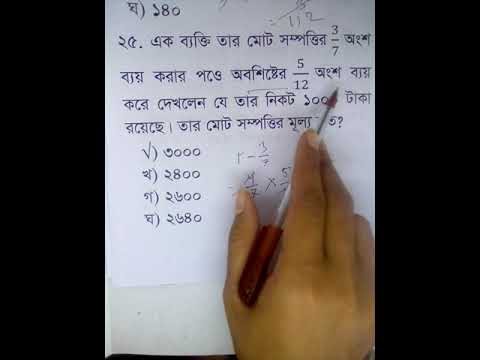 ঘ) ১৪০
112
২৫. এক ব্যক্তি তার মোট সম্পত্তির 3/7 অংশ
ব্যয় করার পওে অবশিষ্টের 5/12 অংশ ব্যয়
করে দেখলেন যে তার নিকট ১০০ টাকা
রয়েছে। তার মোট সম্পত্তির মূল্য
√) ৩০০০
1 - 3/7
খ) ২৪০০
= 4/7 × 5
গ) ২৬০০
ঘ) ২৬৪০